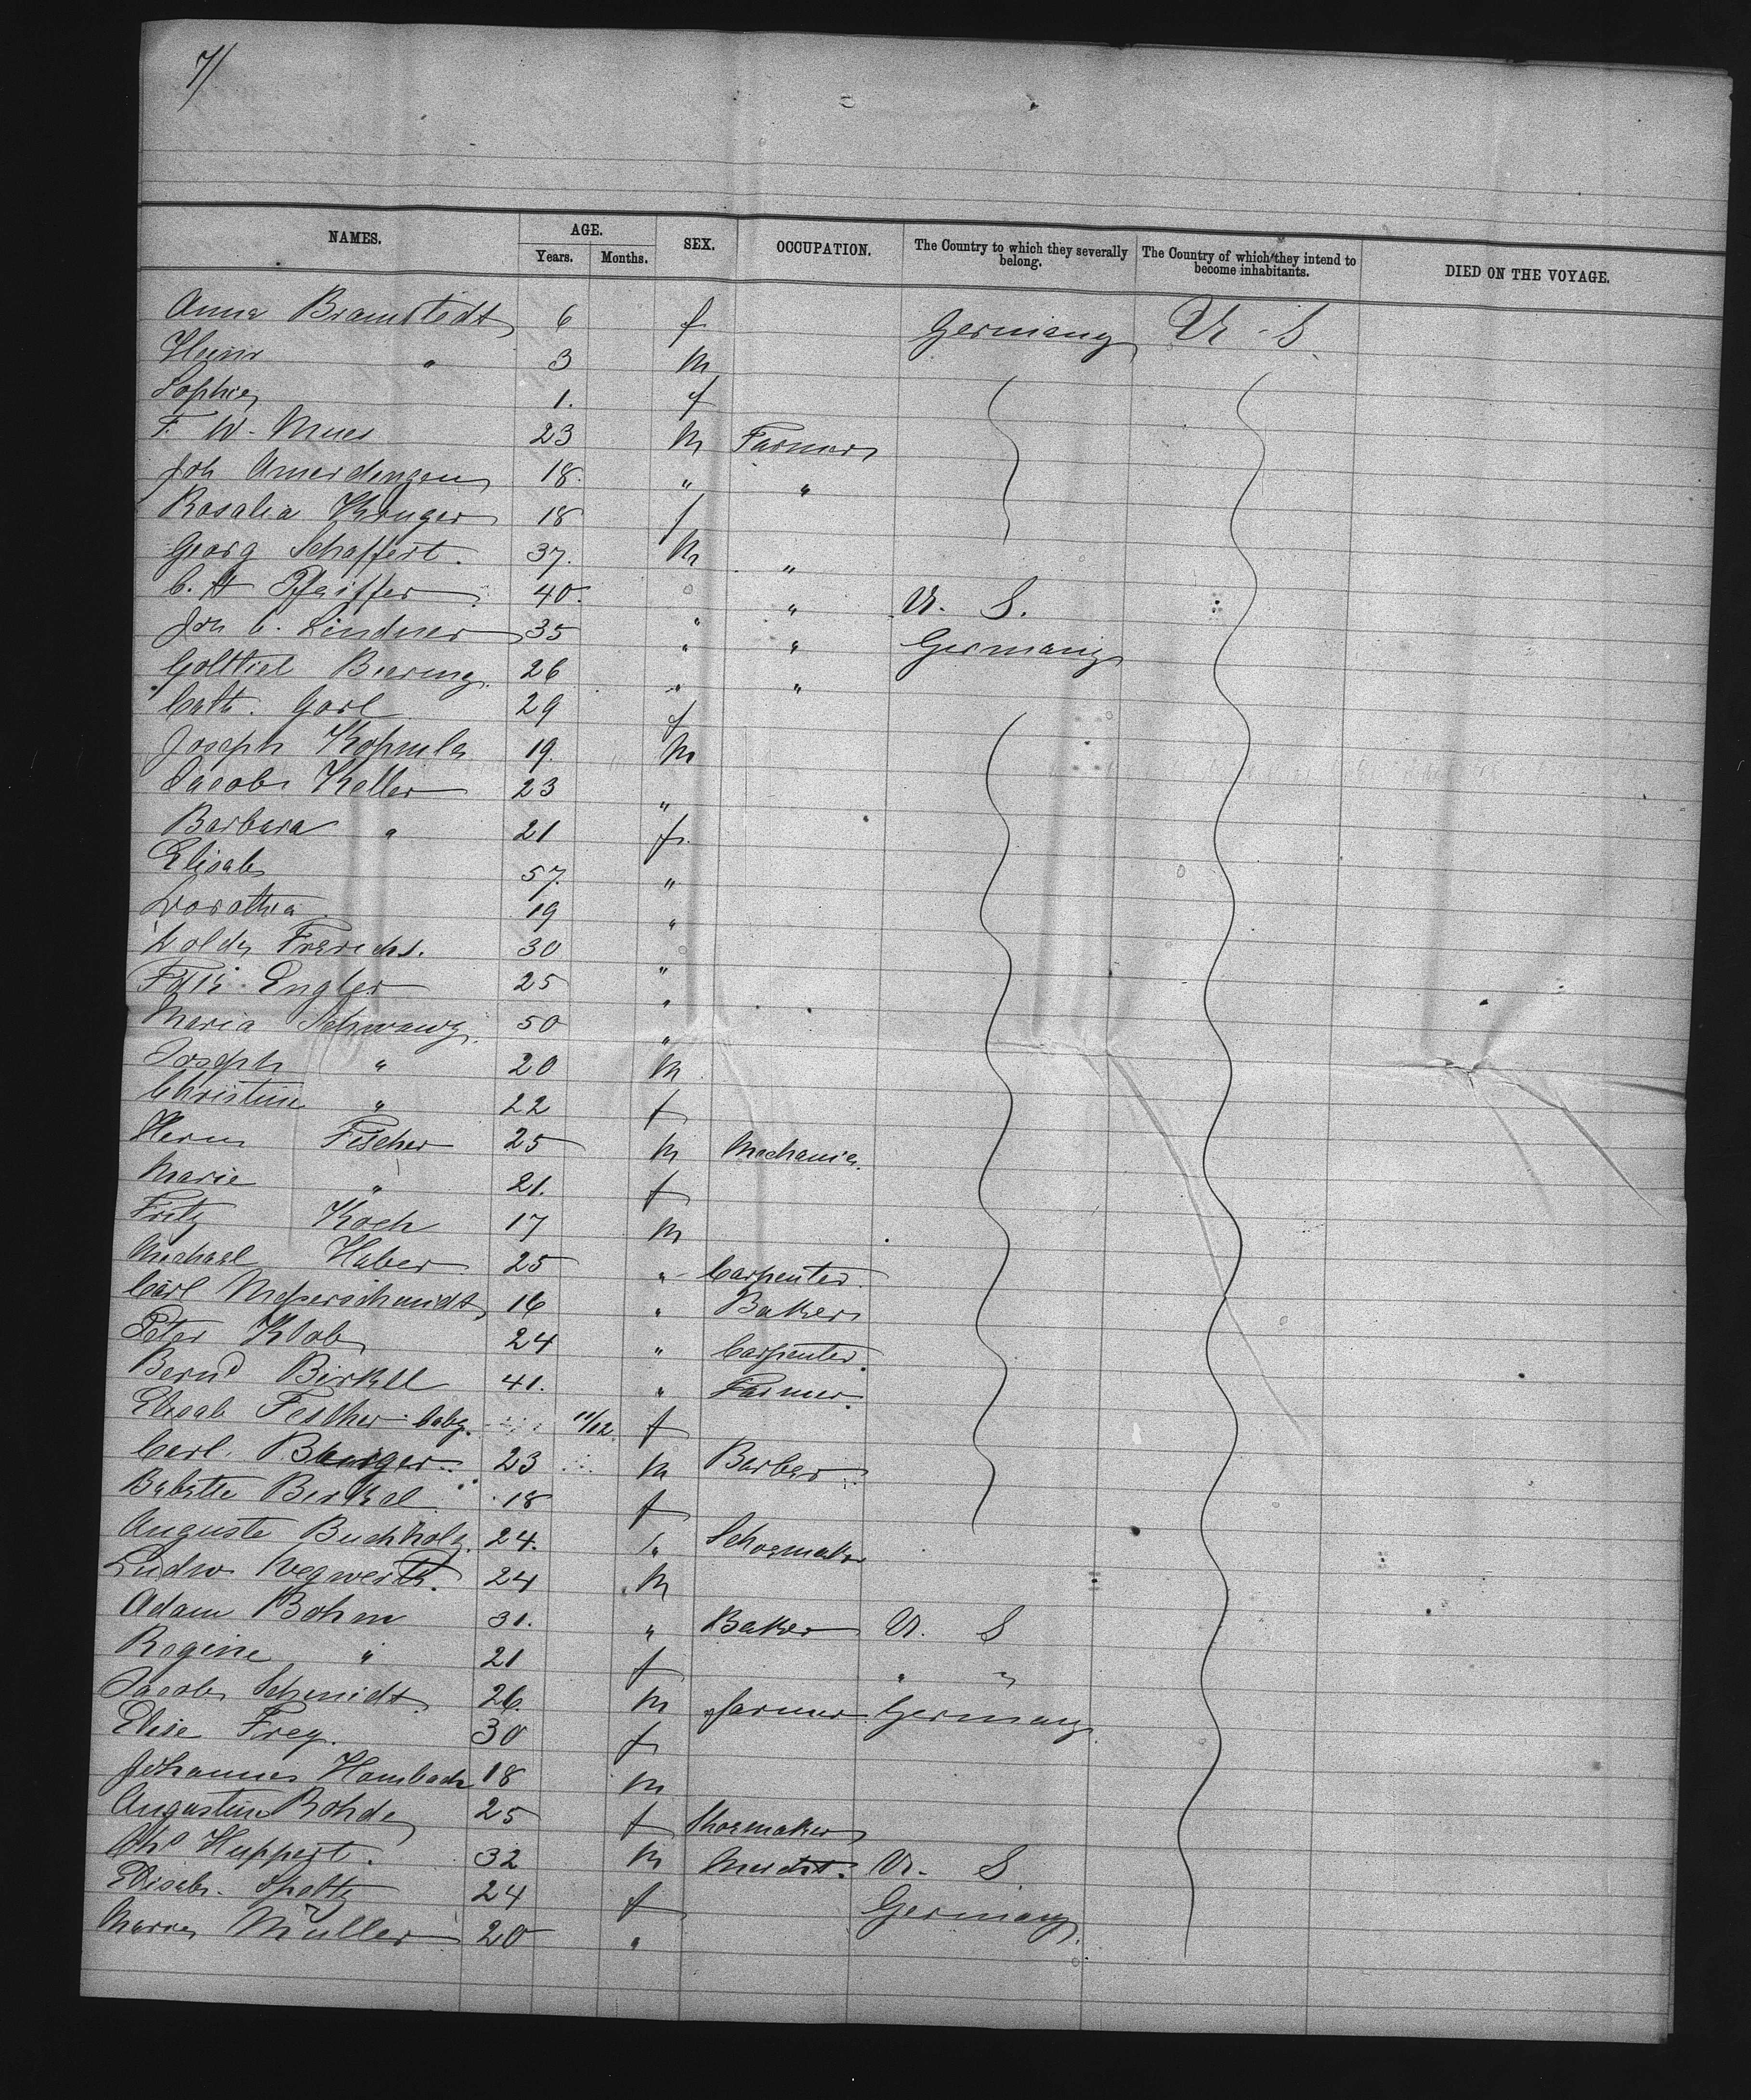 7/
NAMES. AGE. SEX. OCCUPATION. The Country to which they severally belong. The Country of which they intend to become inhabitants. DIED ON THE VOYAGE.
Years. Months.
Anna Bramstedt 6 f Germany U. S.
Heinr " 3 m
Sophie 1. f
F. W. Mues 23 m Farmer
Joh Amerdengen 18. " "
Rosalia Kruger 18 f
Georg Schaffert. 37. m "
C. H Pfeiffer 40. " " U. S.
Joh C. Lindner 35 " " Germany
Gottliel Biering. 26 " "
Cath. Garl 29 f
Joseph 19. m
Jacob Keller 23 "
Barbara " 21 f.
Elisab 57. "
Dorothea 19 "
Frerichs. 30 "
Engler 25 "
Maria 50 "
Joseph " 20 m
Christine " 22 f
Herm Fischer 25 m Mechanic.
Marie " 21. f
Fritz Koch 17 m
Michael Huber 25 " Carpenter.
Carl Meperschmidt 16 " Baker
Peter Klob 24 " Carpenter.
Bernd Birkel 41. " Farmer.
Elisab Fescher baby. 11/12 f
Carl Burger 23 m Barber
Babette Berkel 18 f
Auguste Buchholz. 24. " Schoemaker
Ludw. Wegwerth. 24 m
Adam Bohm 31. " Baker U. S
Regine " 21 f " "
Jacob Schmidt 26. m farmer Germany
Elise Frey. 30 f
Johannes Hambach 18 m
Augustine Rohde 25 f Shoemaker
Huppert. 32 m Mercht. U. S
Elisab. Speltz 24 f Germany.
Müller 20 "